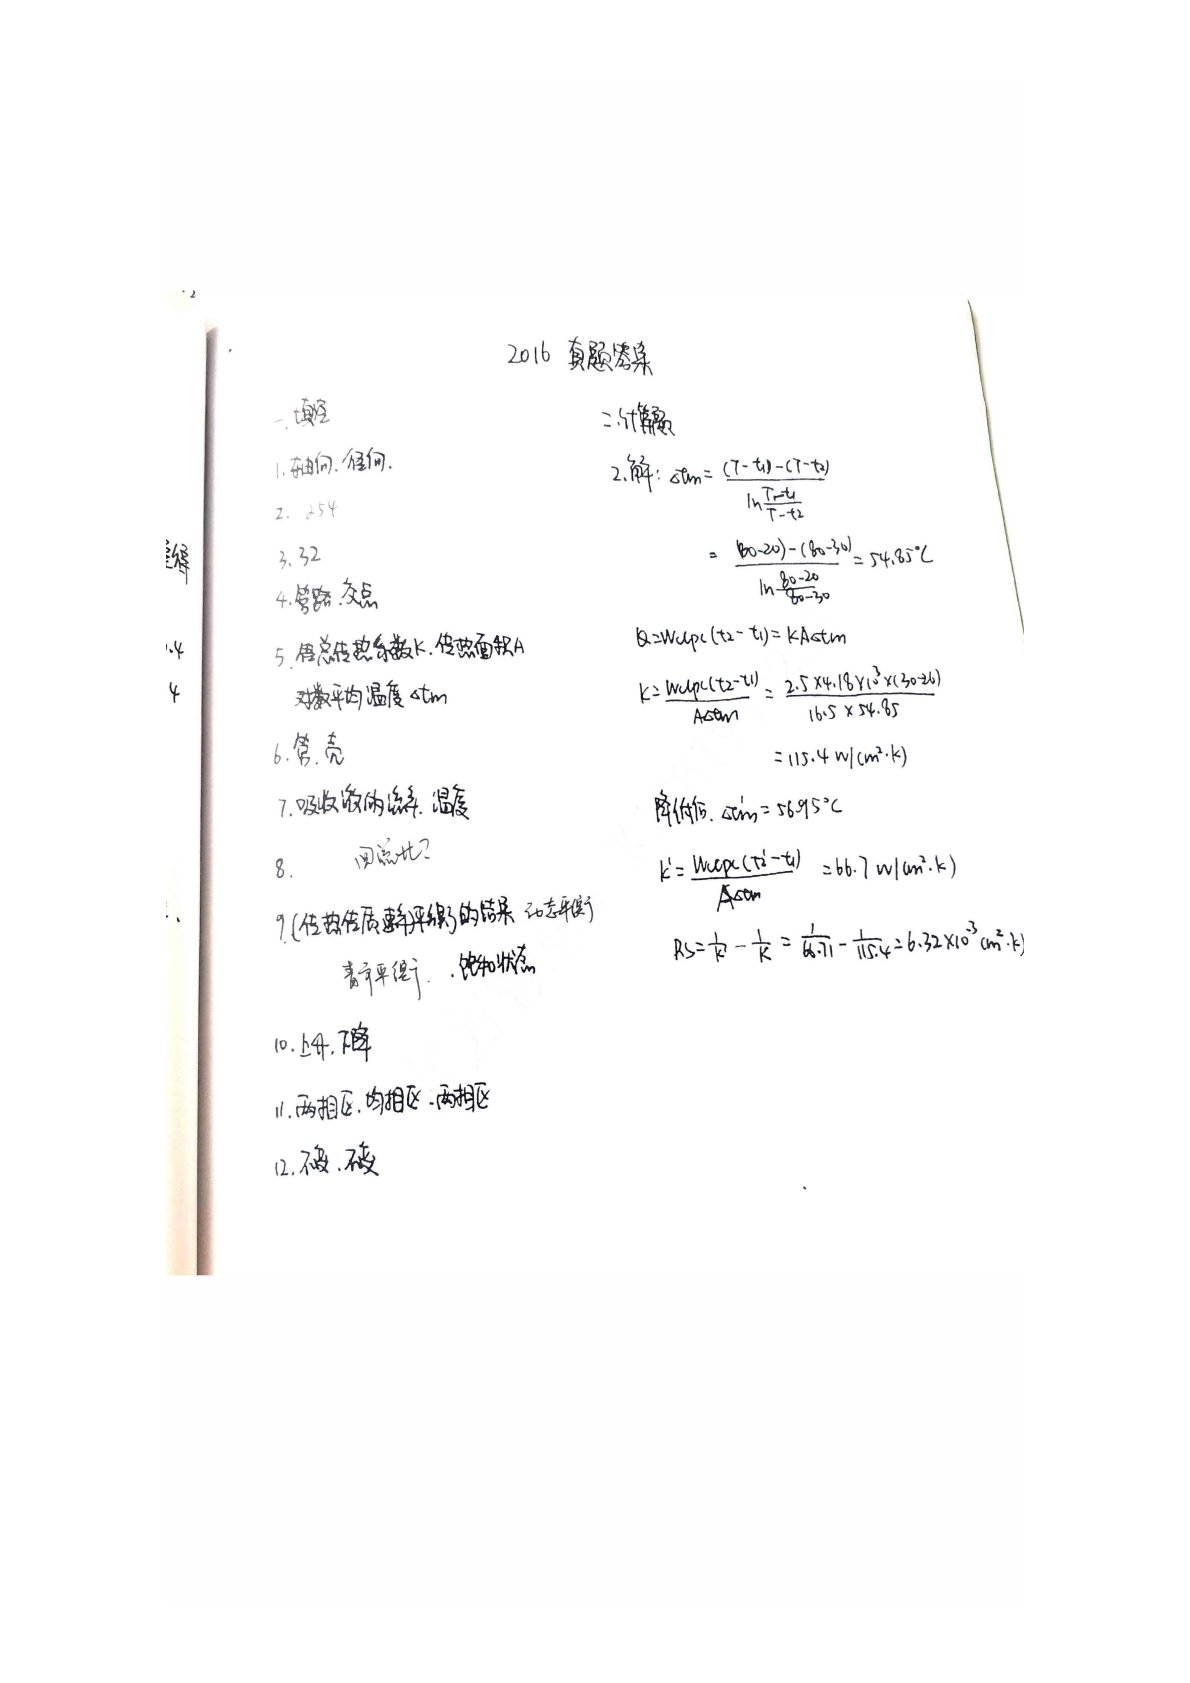 2016 真题答案
一.填空
1.轴向.径向.
2. 254
3. 32
4.管路.交点
5.总传热系数K.传热面积A
对数平均温度Δtm
6.管.壳
7.吸收液的流率.温度
8. 回流比?
9.(传热传质速率平衡)的结果 动态平衡
.饱和状态
10.上升.下降
11.两相区.均相区.两相区
12.不变.不变
二.计算题
2.解: Δtm = (T-t1)-(T-t2) / ln (T-t1)/(T-t2)
= (80-20)-(80-30) / ln (80-20)/(80-30) = 54.85℃
Q=Wccpc(t2-t1)=KAΔtm
K= Wccpc(t2-t1) / AΔtm = 2.5×4.18×10³×(30-20) / 16.5×54.85
=115.4 W/(m²·K)
降低后. Δt'm=56.95℃
K'= Wccpc(t2'-t1) / AΔtm =66.7 W/(m²·K)
Rs= 1/K' - 1/K = 1/66.71 - 1/115.4 = 6.32×10⁻³ (m²·K)
1.4
4
2